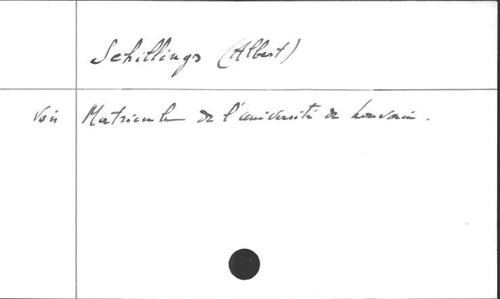 Schillings (Albert)
Voir Matricule de l'université de Louvain.